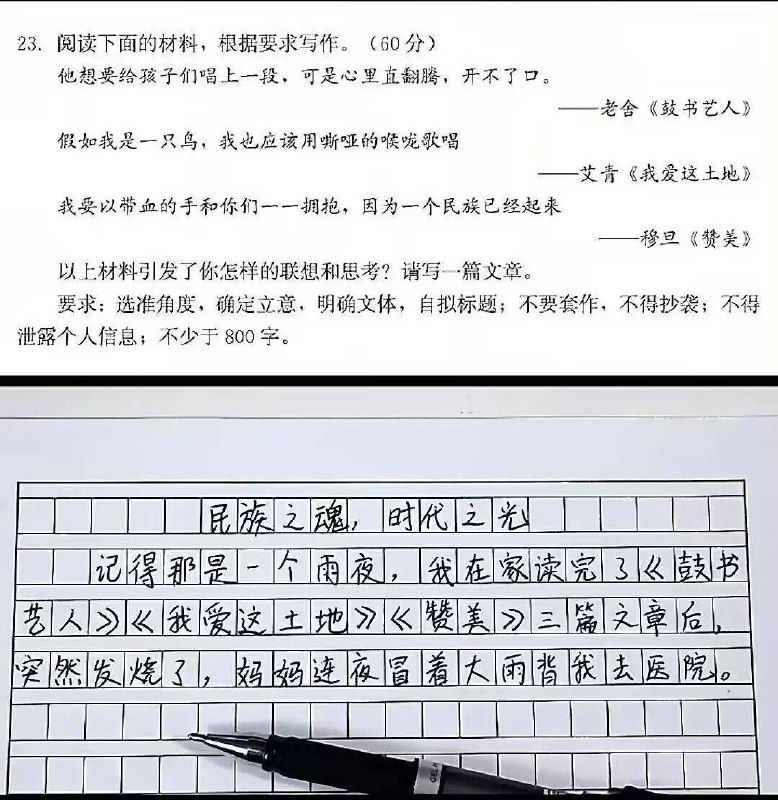 23. 阅读下面的材料，根据要求写作。（60分）
他想要给孩子们唱上一段，可是心里直翻腾，开不了口。
——老舍《鼓书艺人》
假如我是一只鸟，我也应该用嘶哑的喉咙歌唱
——艾青《我爱这土地》
我要以带血的手和你们一一拥抱，因为一个民族已经起来
——穆旦《赞美》
以上材料引发了你怎样的联想和思考？请写一篇文章。
要求：选准角度，确定立意，明确文体，自拟标题；不要套作，不得抄袭；不得
泄露个人信息；不少于800字。
民族之魂，时代之光
记得那是一个雨夜，我在家读完了《鼓书
艺人》《我爱这土地》《赞美》三篇文章后，
突然发烧了，妈妈连夜冒着大雨背我去医院。